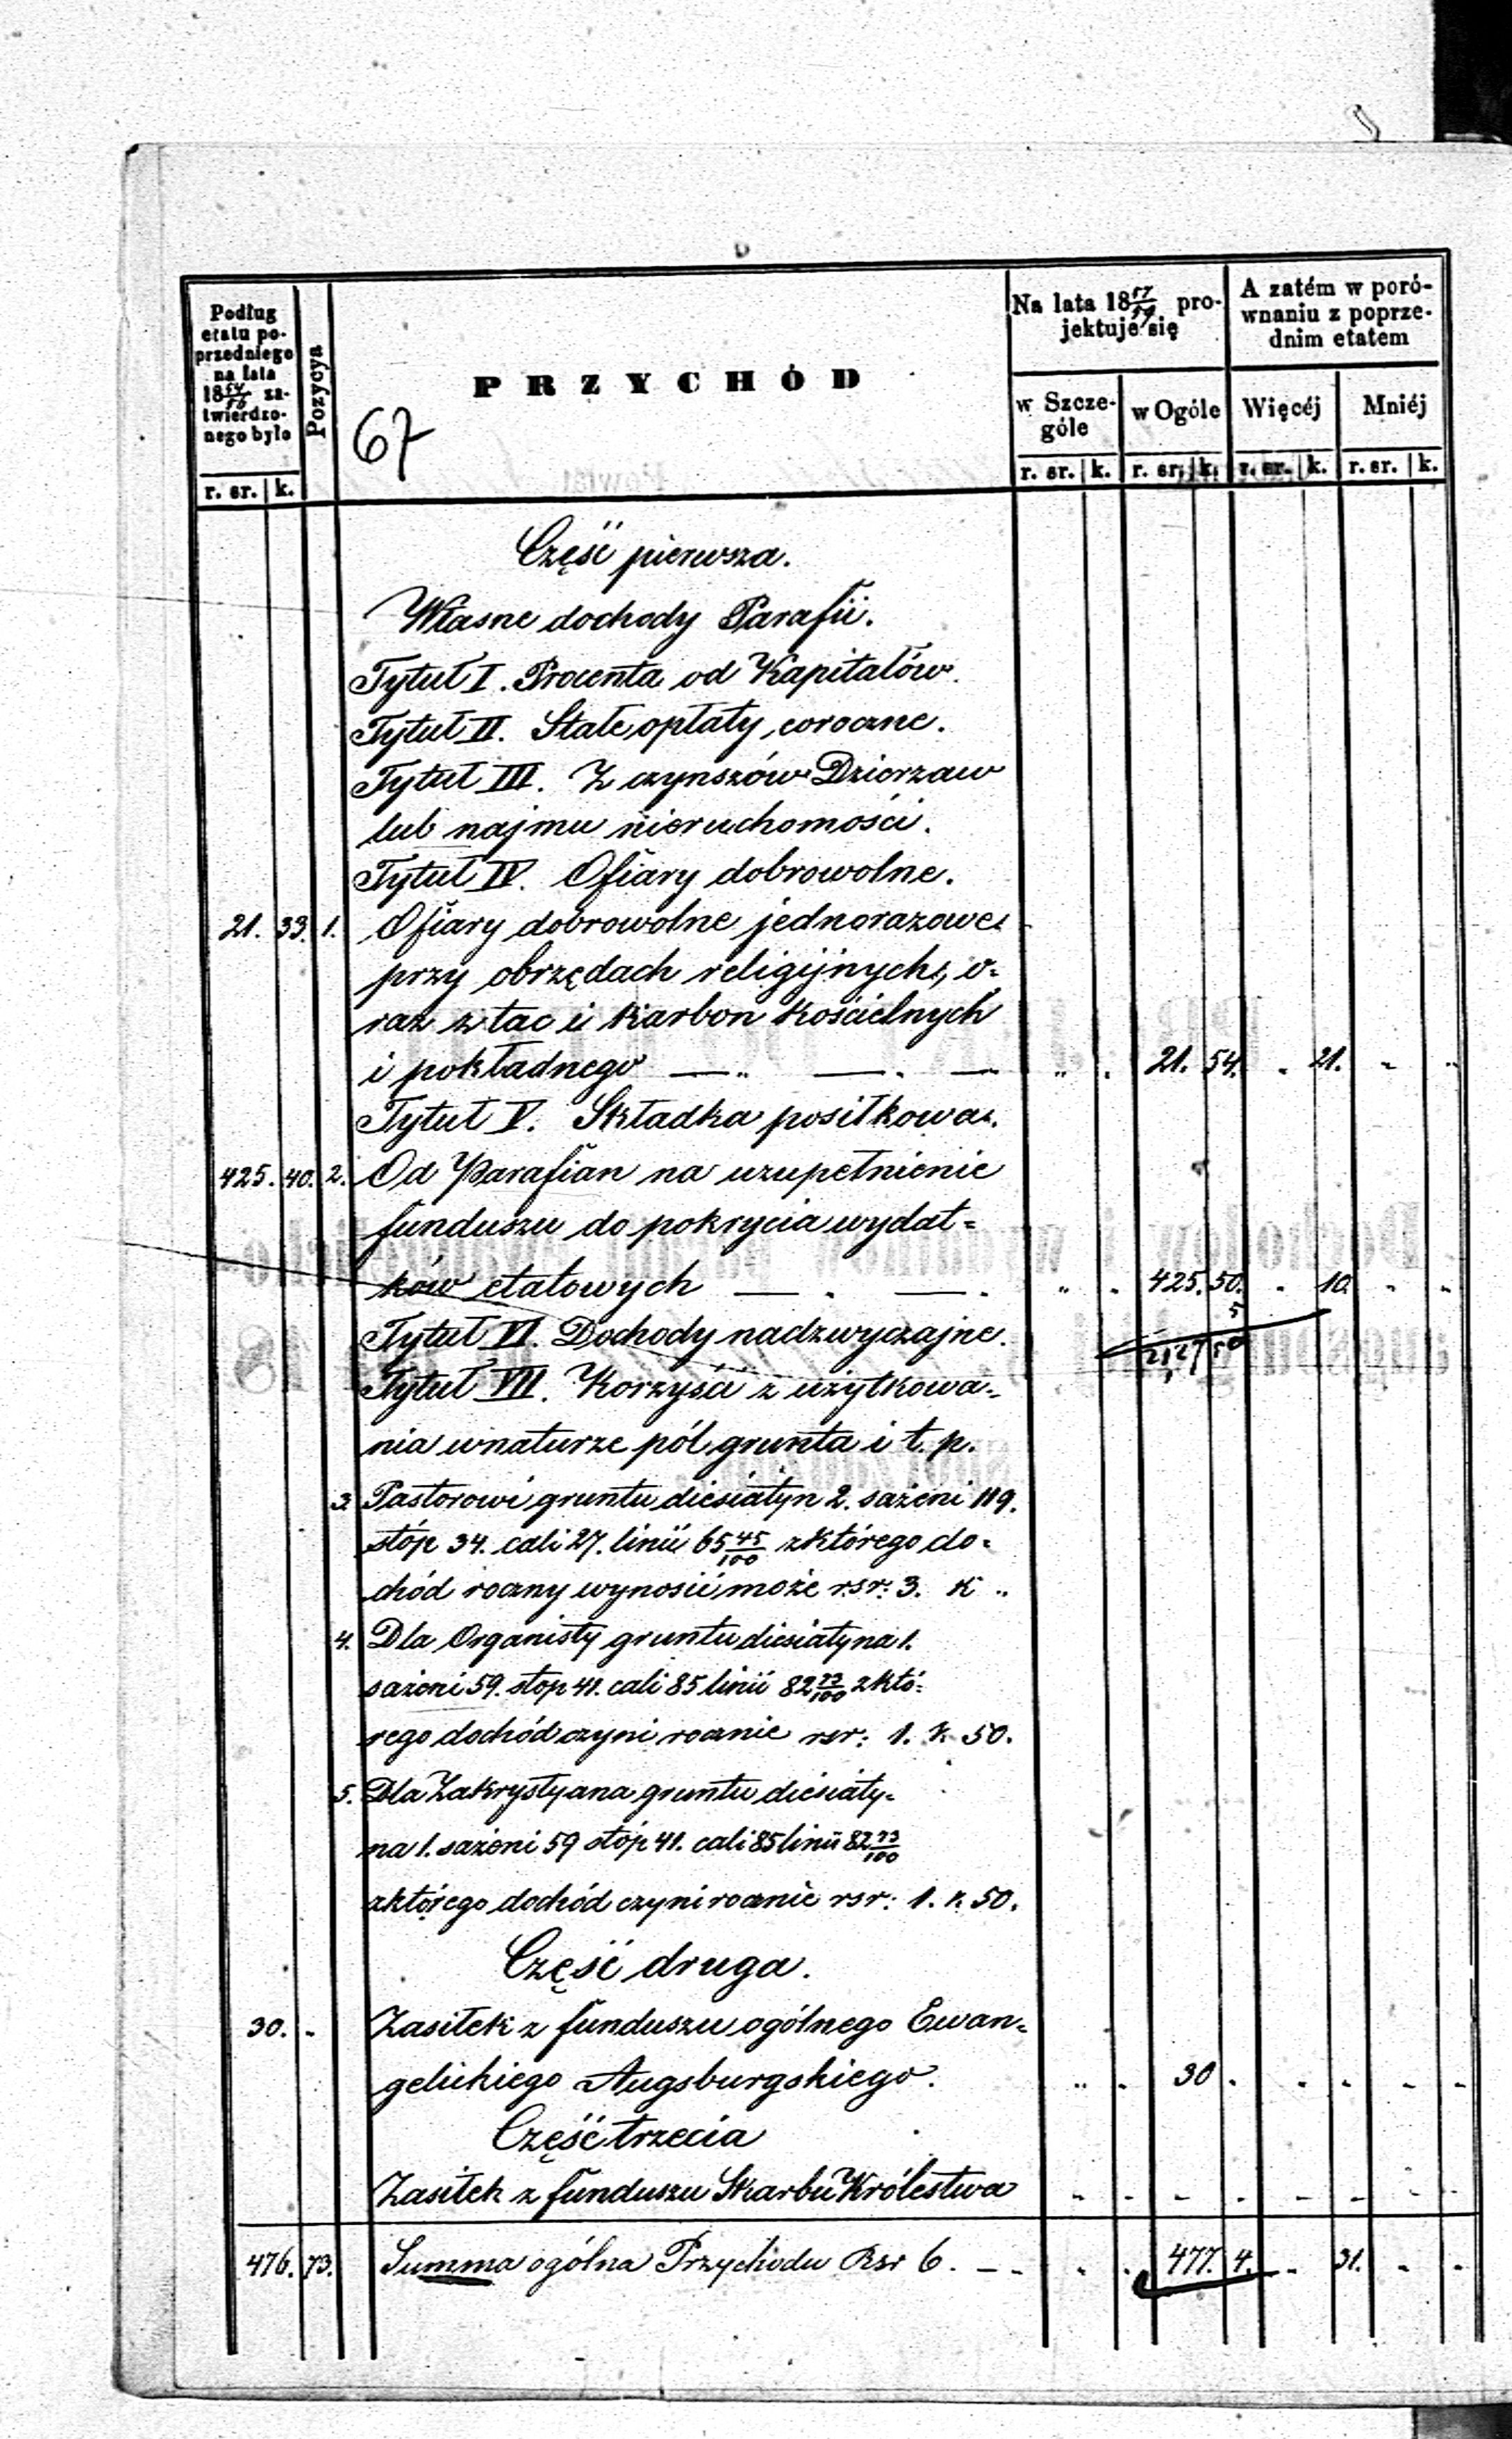 Podług
etatu po-
przedniego
na lata
18 54/56 za-
twierdzo-
nego było
r. sr. k.
Pozycya
PRZYCHÓD
67
Na lata 18 57/59 pro-
jektuje się
w Szcze-
góle
r. sr. k.
w Ogóle
r. sr. k.
A zatém w poró-
wnaniu z poprze-
dnim etatem
Więcéj
r. sr. k.
Mniéj
r. sr. k.
Część pierwsza.
Własne dochody Parafii.
Tytuł I. Procenta od Kapitałów.
Tytuł II. Stałe opłaty coroczne.
Tytuł III. Z czynszów Dzierzaw
lub najmu nieruchomości.
Tytuł IV. Ofiary dobrowolne.
21. 33. 1. Ofiary dobrowolne jednorazowe
przy obrzędach religijnych, o=
raz z tac i karbon Kościelnych
i pokładnego — „ — . — „ . 21. 54. . 21. - „
Tytuł V. Składka posiłkowa.
425. 40. 2. Od Parafian na uzupełnienie
funduszu do pokrycia wydat=
ków etatowych — . — . „ . 425. 50. . 10. . „
5
Tytuł VI. Dochody nadzwyczajne.
Tytuł VII. Korzyści z użytkowa=
nia w naturze pól, grunta i t. p.
3. Pastorowi gruntu diesiatyn 2. sażeni 119.
stóp 34. cali 27. linii 65 45/100 z którego do=
chód roczny wynosić może rsr: 3. K „
4. Dla Organisty gruntu diesiatyna 1.
sażeni 59. stop 41. cali 85 linii 82 73/100 z któ=
rego dochód czyni rocznie rsr: 1. k. 50.
5. Dla Zakrystyana gruntu diesiaty=
na 1. sażeni 59 stóp 41. cali 85 linii 82 73/100
z którego dochód czyni rocznie rsr: 1. k. 50.
Część druga.
30. - Zasiłek z funduszu ogólnego Ewan=
gelickiego Augsburgskiego. „ . 30 . . - - -
Część trzecia
Zasiłek z funduszu Skarbu Królestwa - - - - - - - -
476. 73. Summa ogólna Przychodu Rsr 6. - - . . 477. 4. - 31. - -